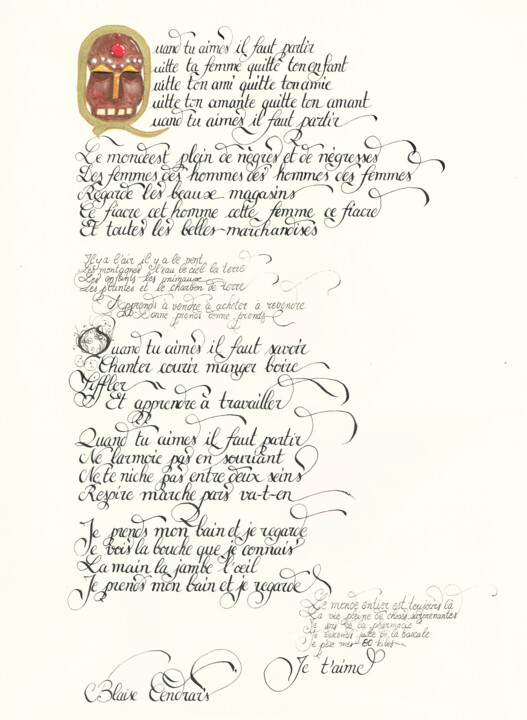 Quand tu aimes il faut partir
Quitte ta femme quitte ton enfant
Quitte ton ami quitte ton amie
Quitte ton amante quitte ton amant
Quand tu aimes il faut partir
Le monde est plein de nègres et de négresses
Des femmes des hommes des hommes des femmes
Regarde les beaux magasins
Ce fiacre cet homme cette femme ce fiacre
Et toutes les belles marchandises
Il y a l'air il y a le vent
Les montagnes l'eau le ciel la terre
Les enfants les animaux
Les plantes et le charbon de terre
Apprends à vendre à acheter à revendre
Donne prends donne prends
Quand tu aimes il faut savoir
Chanter courir manger boire
Siffler
Et apprendre à travailler
Quand tu aimes il faut partir
Ne larmoie pas en souriant
Ne te niche pas entre deux seins
Respire marche pars va-t-en
Je prends mon bain et je regarde
Je vois la bouche que je connais
La main la jambe l'œil
Je prends mon bain et je regarde
Le monde entier est toujours là
La vie pleine de choses surprenantes
Je sors de la pharmacie
Je descends juste de la bascule
Je pèse mes 80 kilos
Je t'aime
Blaise Cendrars